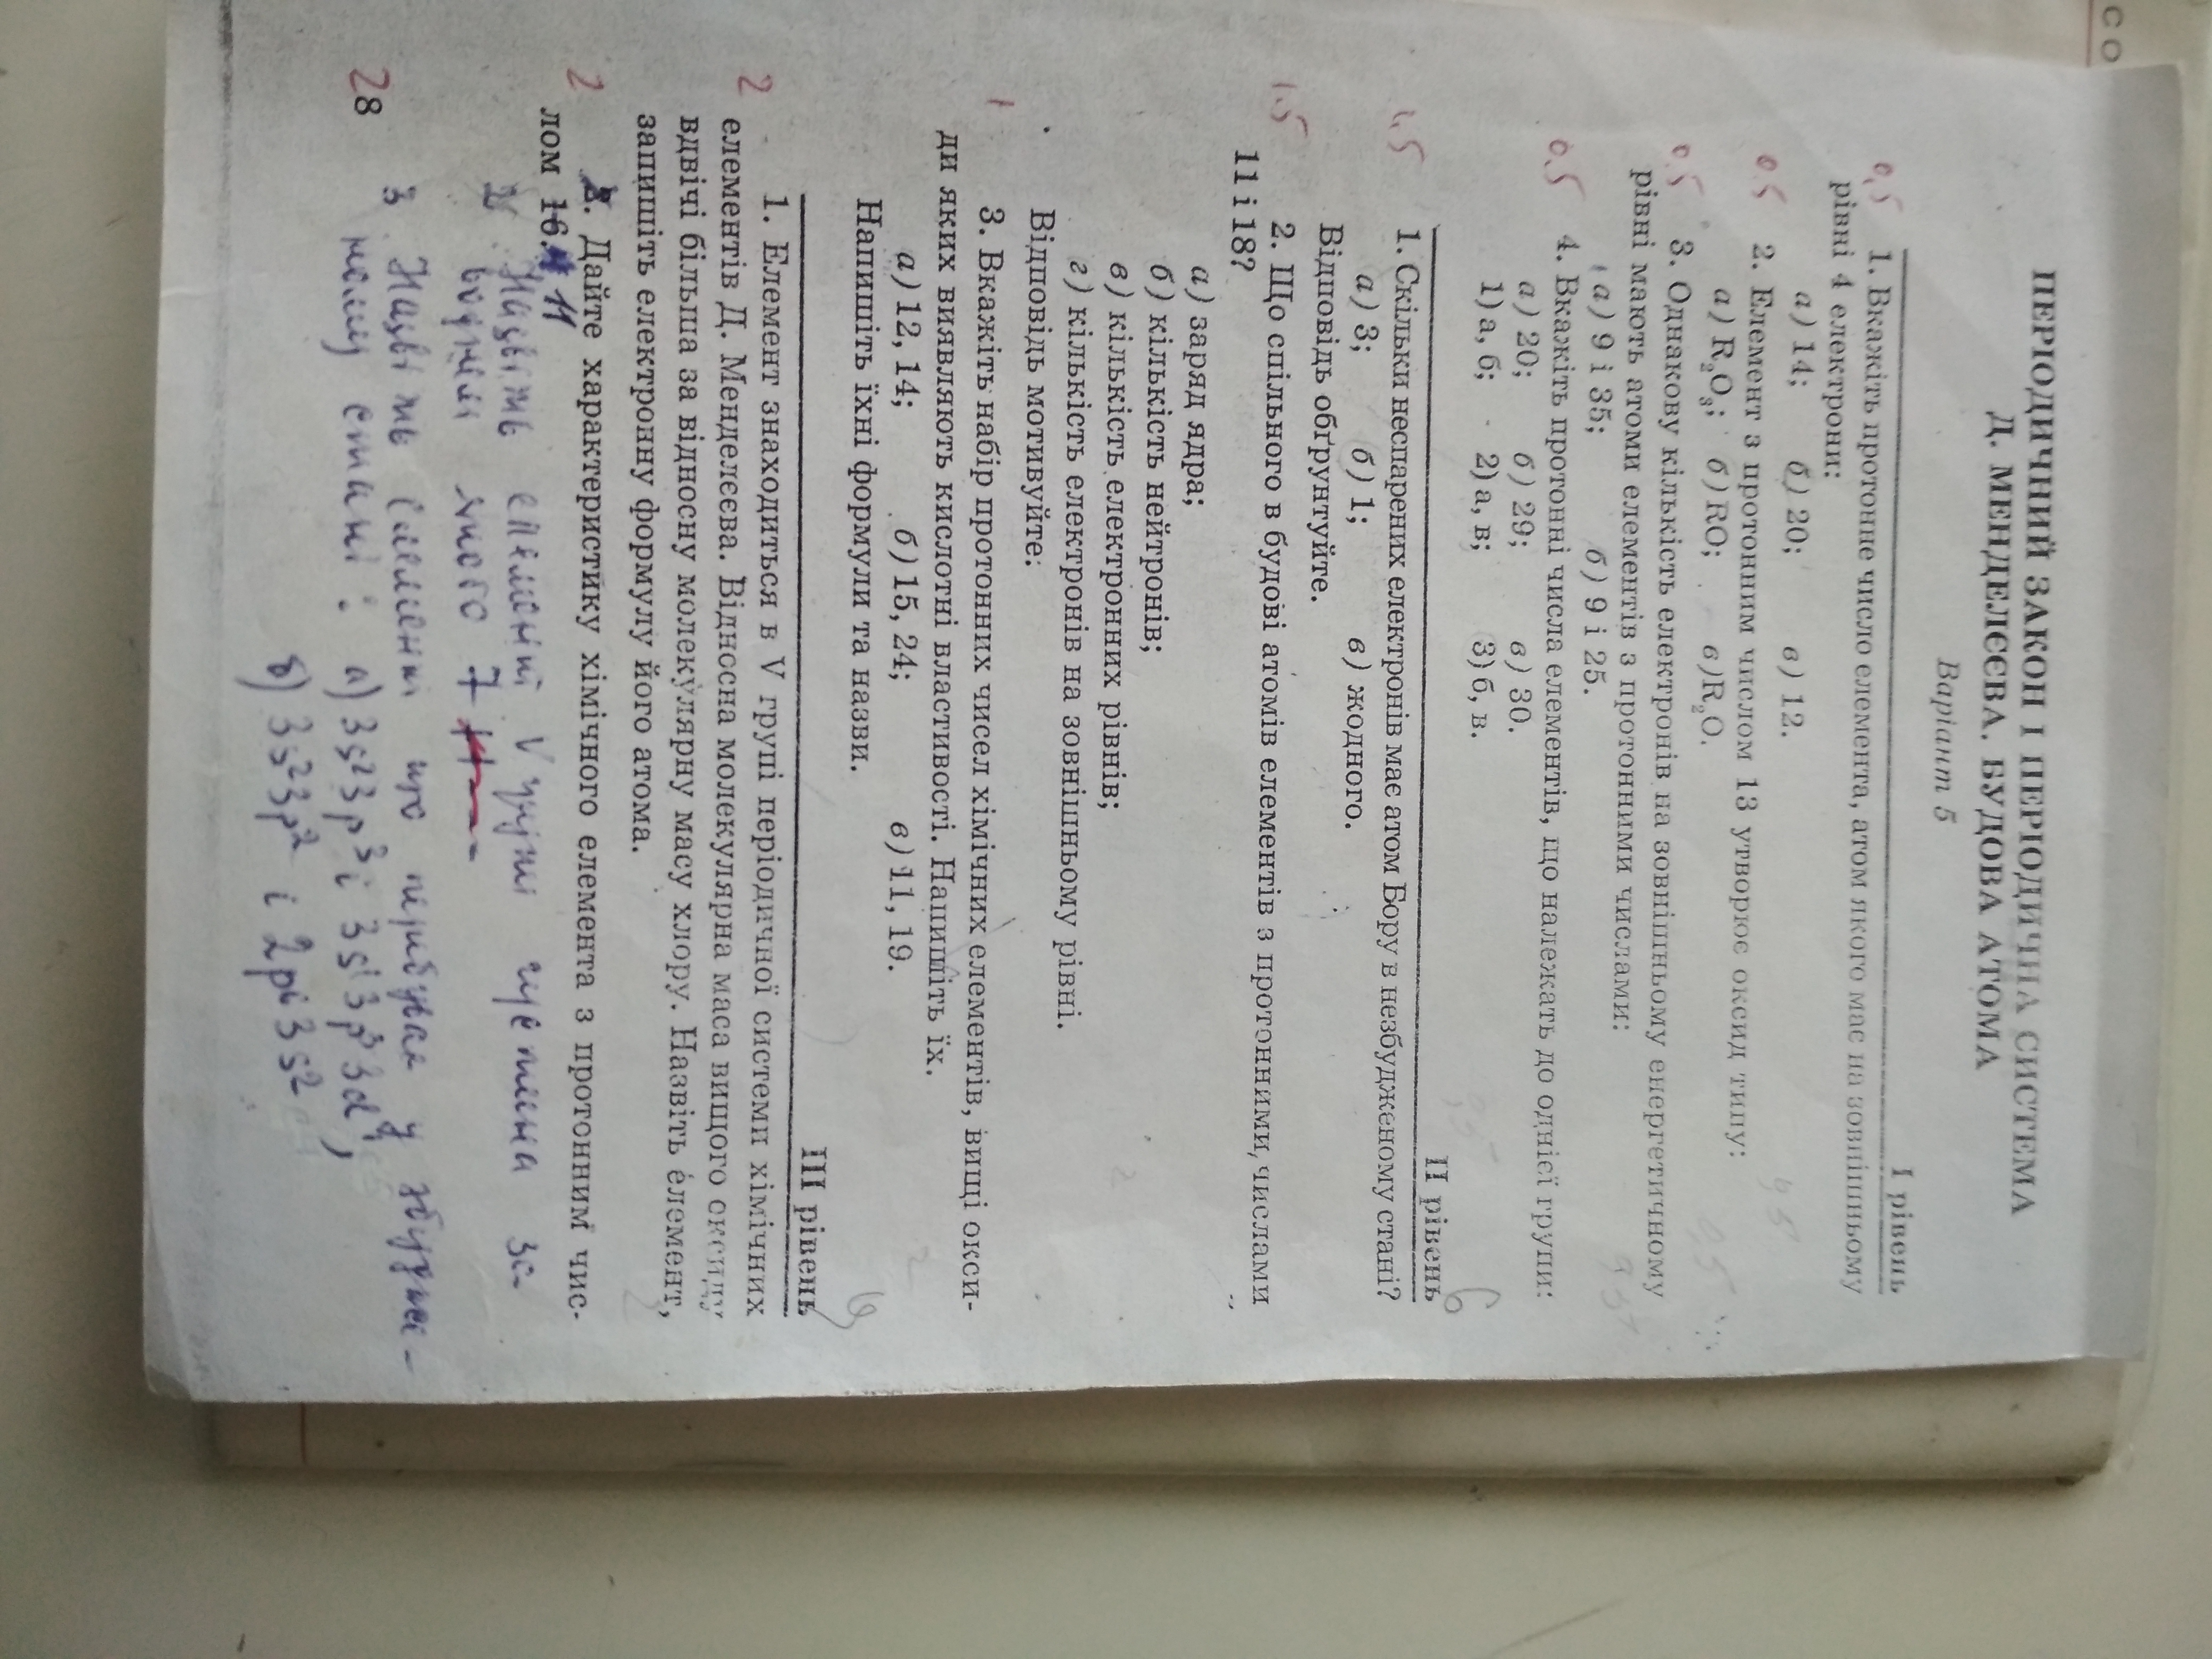 СО
ПЕРІОДИЧНИЙ ЗАКОН І ПЕРІОДИЧНА СИСТЕМА
Д. МЕНДЕЛЄЄВА. БУДОВА АТОМА
Варіант 5
І рівень
0,5 1. Вкажіть протонне число елемента, атом якого має на зовнішньому
рівні 4 електрони:
а) 14; б) 20; в) 12.
0.5 2. Елемент з протонним числом 13 утворює оксид типу:
а) R₂O₃; б) RO; в) R₂O.
0.5 3. Однакову кількість електронів на зовнішньому енергетичному
рівні мають атоми елементів з протонними числами:
а) 9 і 35; б) 9 і 25.
0.5 4. Вкажіть протонні числа елементів, що належать до однієї групи:
а) 20; б) 29; в) 30.
1) а, б; 2) а, в; 3) б, в.
ІІ рівень
1,5 1. Скільки неспарених електронів має атом Бору в незбудженому стані?
а) 3; б) 1; в) жодного.
Відповідь обґрунтуйте.
1.5 2. Що спільного в будові атомів елементів з протонними числами
11 і 18?
а) заряд ядра;
б) кількість нейтронів;
в) кількість електронних рівнів;
г) кількість електронів на зовнішньому рівні.
Відповідь мотивуйте:
1 3. Вкажіть набір протонних чисел хімічних елементів, вищі окси-
ди яких виявляють кислотні властивості. Напишіть їх.
а) 12, 14; б) 15, 24; в) 11, 19.
Напишіть їхні формули та назви.
ІІІ рівень
1. Елемент знаходиться в V групі періодичної системи хімічних
2 елементів Д. Менделєєва. Відносна молекулярна маса вищого оксиду
вдвічі більша за відносну молекулярну масу хлору. Назвіть елемент,
запишіть електронну формулу його атома.
2. Дайте характеристику хімічного елемента з протонним чис-
2 лом 16. 11
2 Назвіть елемент V групи протонна за-
число 7
3 Назвіть елемент що перебуває у збудже-
ному стані: а) 3s²3p³ і 3s¹3p³3d¹,
б) 3s²3p² і 2p⁶3s²
28